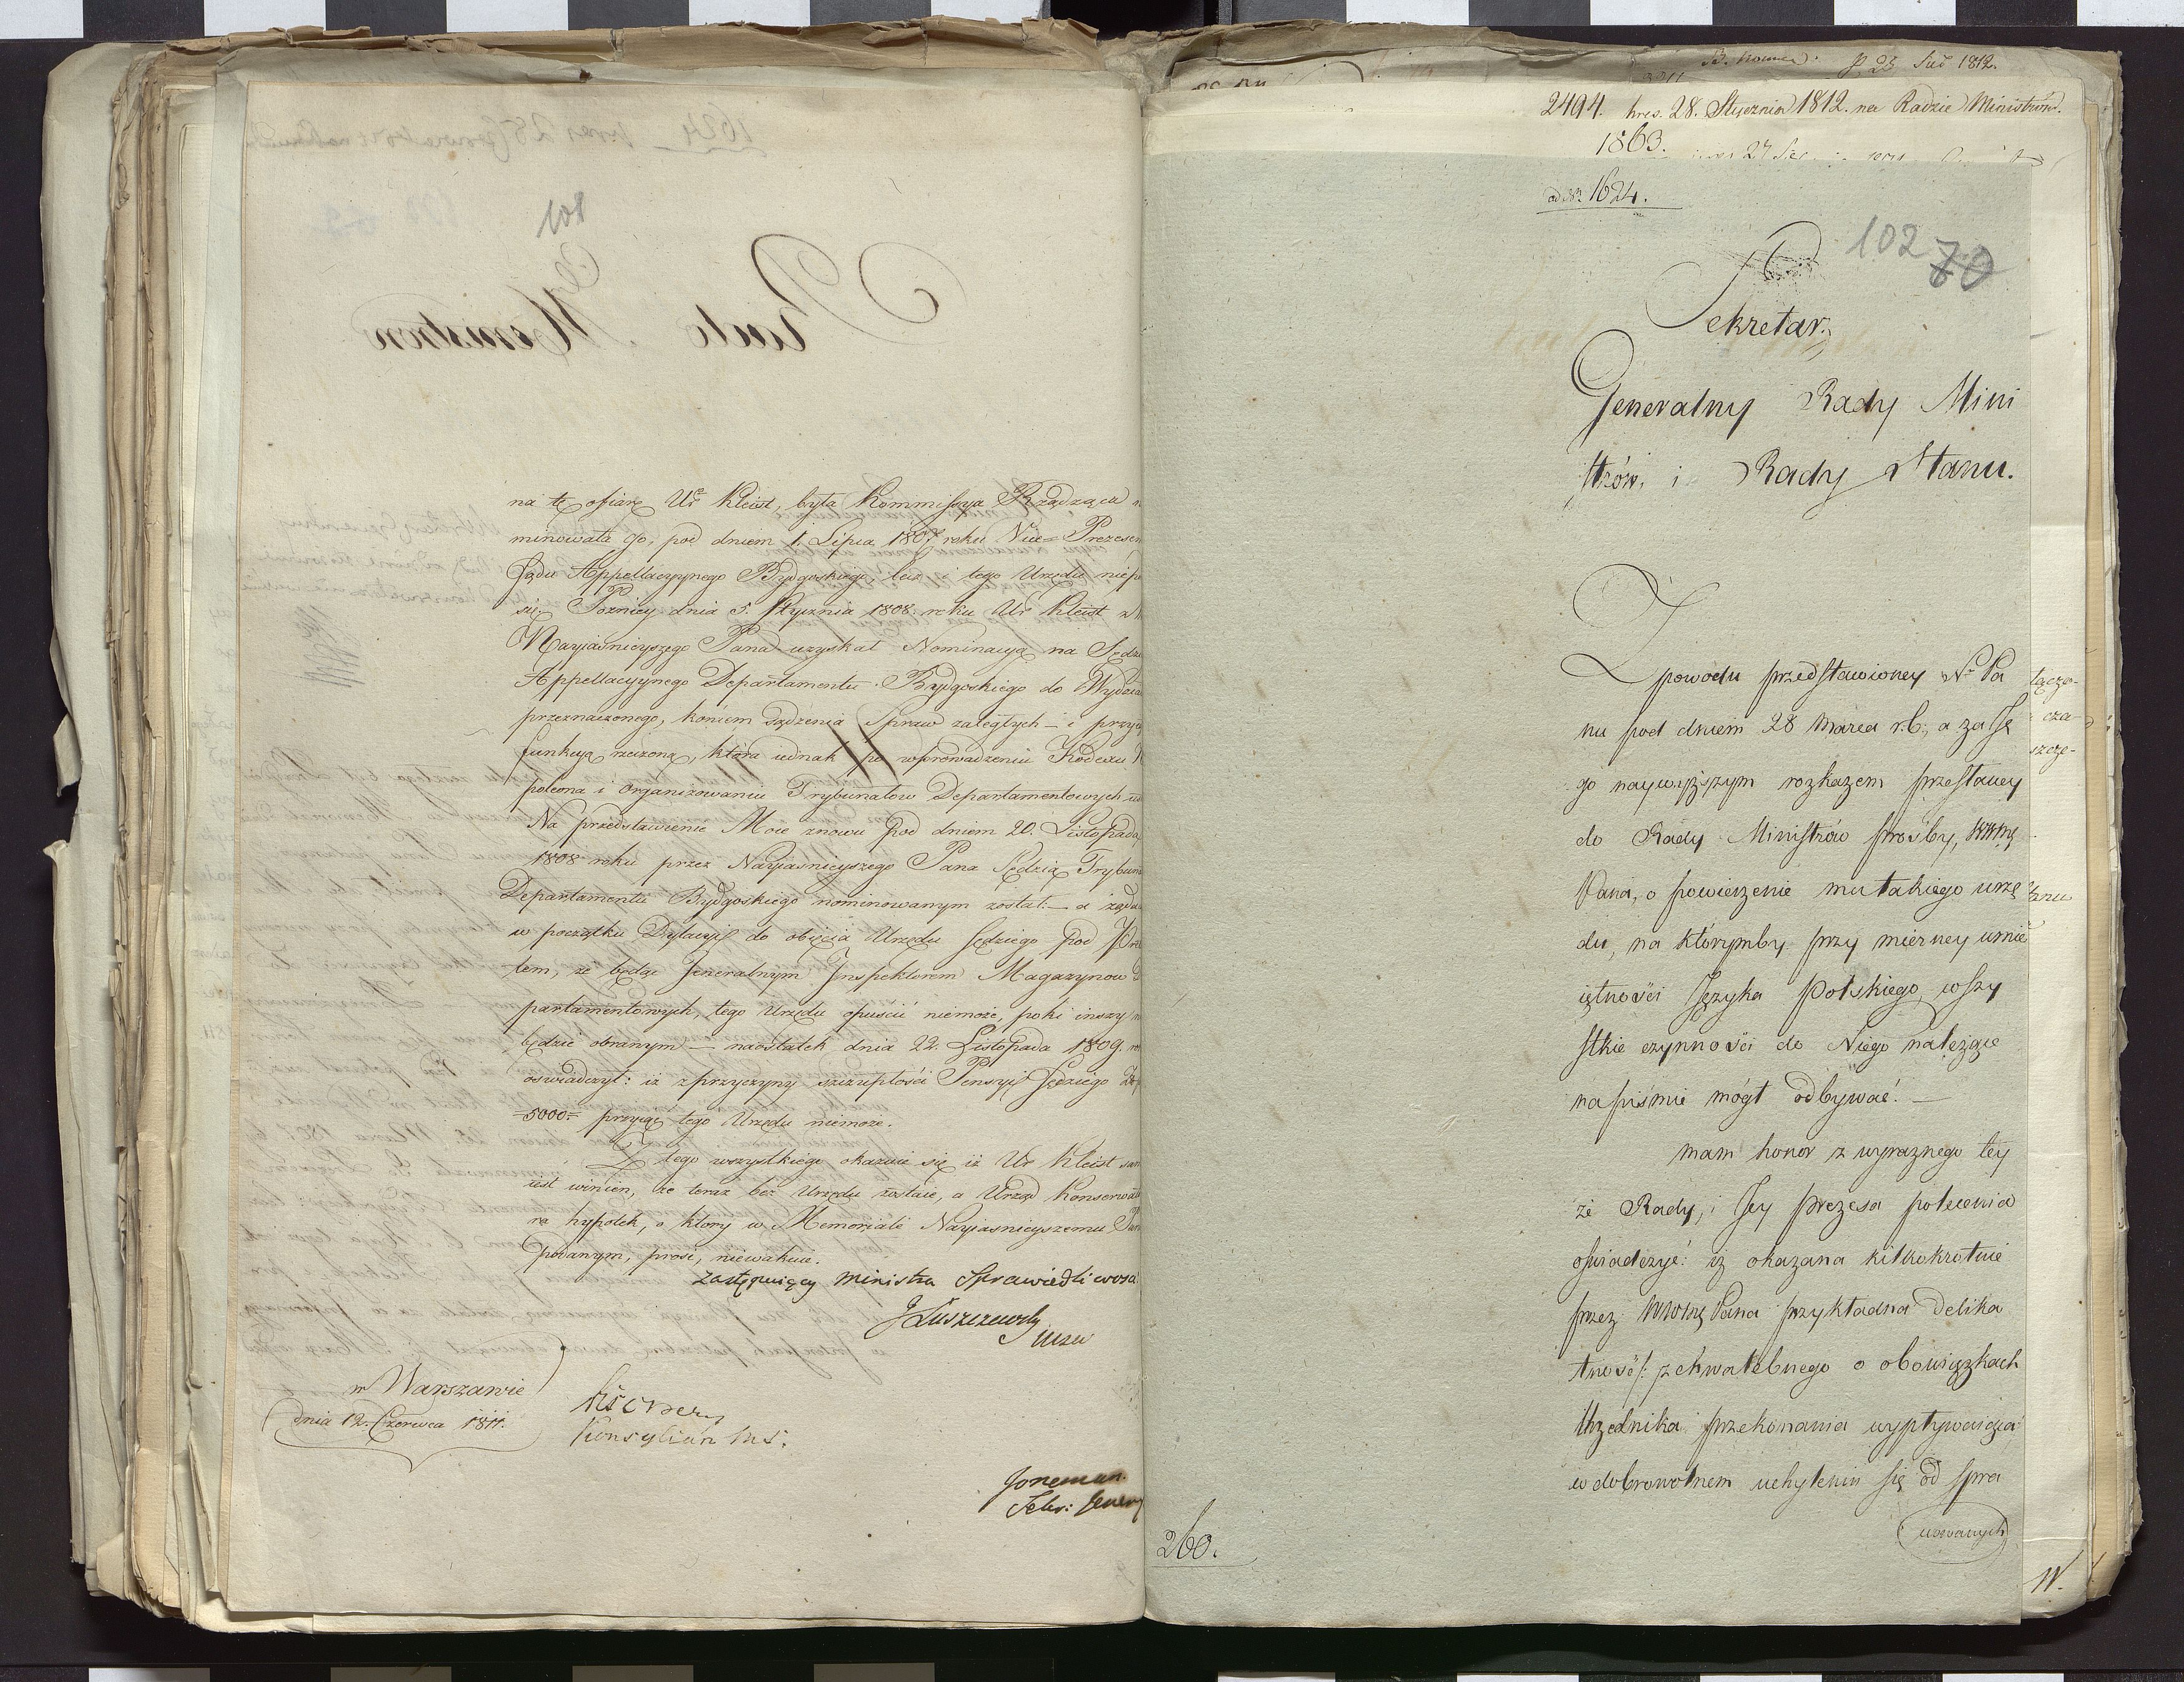 na tę ofiarę Ur Kleist, była Kommissya Rządząca
minowała go, pod dniem 1. Lipca 1807 roku Vice-Prezesem
Sądu Appellacyynego Bydgoskiego, lecz i tego Urzędu
się Pozniey dnia 5. Stycznia 1808. roku Ur Kleist
Nayiaśnieyszego Pana uzyskał Nominacyą na Sędz
Appellacyynego Departamentu Bydgoskiego do Wydzia
przeznaczonego, koncem sądzenia Spraw zaległych – i przy
funkcyą rzeczoną, która iednak po wprowadzeniu Kodexu
poleona i Organizowaniu Trybunałow Departamentowych
Na przedstawienie Moie znowu pod dniem 20. Listopada
1808 roku przez Nayiasnieyszego Pana Sędzią Trybun
Departamentu Bydgoskiego nominowanym został. – a żąda
w początku Dylacyi do obięcia Urzędu Sędziego pod Pre
tem, że będąc Jeneralnym Inspektorem Magazynow
partamentowych, tego Urzędu opuścić niemoże, poki inszy
będzie obranym – naostatek dnia 22. Listopada 1809.
oswiadczył: iż z przyczyny szczupłości Pensyi Sędziego
=5000= przyjąć tego Urzędu niemoże.
Z tego wszystkiego okazuie się iż Ur Kleist sam
iest winien, że teraz bez Urzędu zostaie, a Urząd Konserwat
ra hypotek, o ktory w Memoriale Nayiasnieyszemu Pan
podanym, prosi, niewakuie.
Zastępuiący Ministra Sprawiedliwosci
J Łuszczewsky
w Warszawie
dnia 12. Czerwca 1811.
Konsyliarz
Joneman.
Sekr: Jener
108
28 Sie 1812.
2494. pres. 28. Stycznia 1812. na Radzie Ministrów.
1863.
ad N: 1624.
102 70
Sekretarz
Generalny Rady Mini
strów i Rady Stanu.
Z powodu przedstawioney N. Pa
nu pod dniem 28 Marca r.b., a za Je
go naywyższym rozkazem przesłaney
do Rady Ministrów prośby, WW
Pana, o powierzenie mu takiego urzę
du, na którymby przy mierney umie
iętności Języka Polskiego wszy
stkie czynności do Niego należące
na piśmie mógł odbywać. –
mam honor z wyraznego tey
że Rady, i Jey prezesa polecenia
oswiadczyć: iż okazana kilkokrotnie
przez Pana przykładna delika
tność z chwalebnego o obowiązkach
Urzędnika przekonania wypływaiąca
w dobrowolnem uchyleniu się od spra
wowanych
260.
łącza-
cza-
szcze-
W.